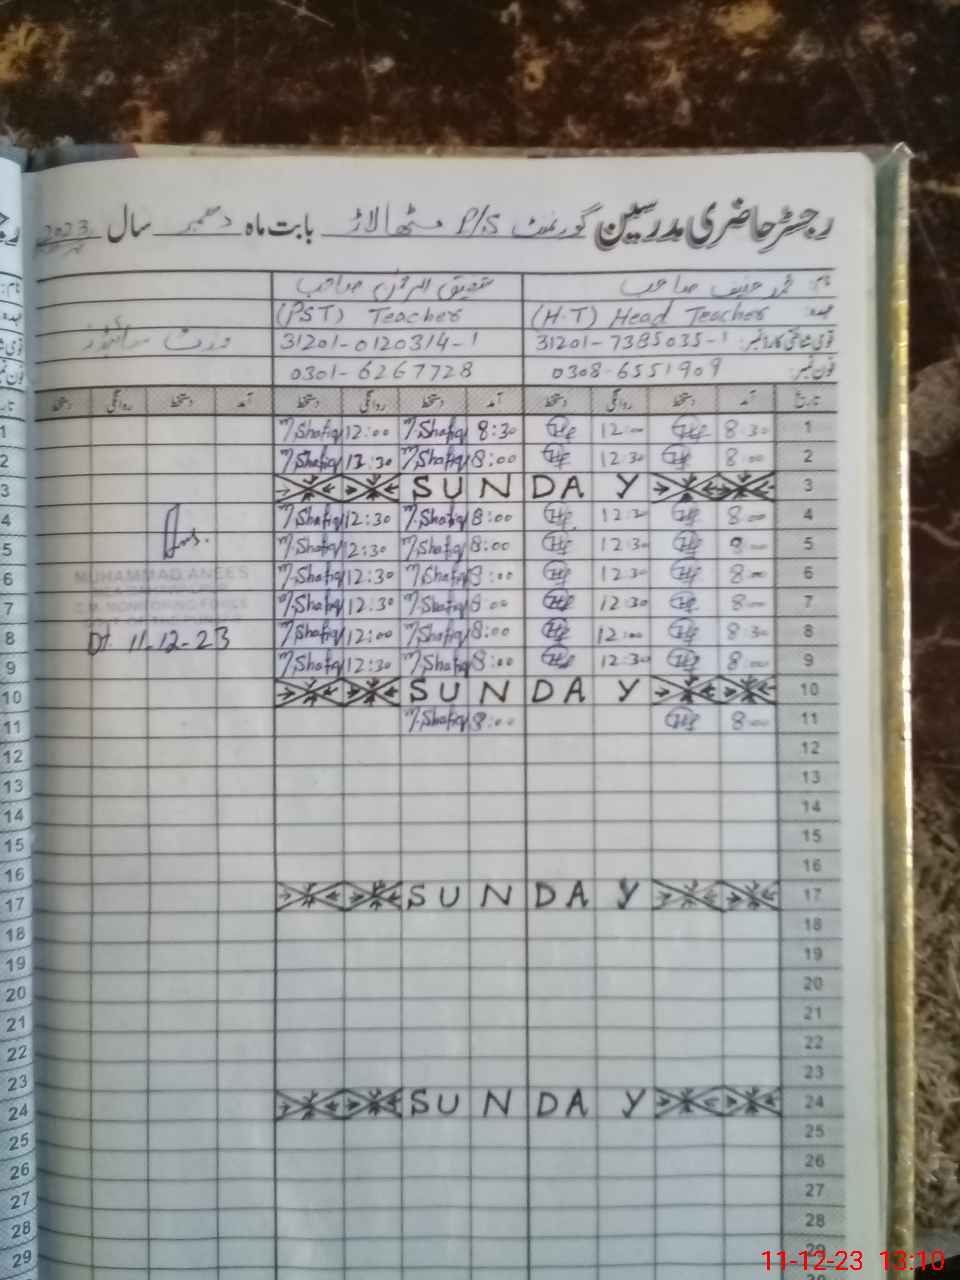 رجسٹر حاضری مدرسین گورنمنٹ P/S مٹھا لاڑ بابت ماہ دسمبر سال 2023
نام: محمد حنیف صاحب شفیق الرحمن صاحب
عہدہ: (H.T) Head Teacher (PST) Teacher
قومی شناختی کارڈ نمبر: 31201-7385035-1 31201-0120314-1
فون نمبر: 0308-6551909 0301-6267728
تاریخ آمد دستخط روانگی دستخط آمد دستخط روانگی دستخط آمد دستخط روانگی دستخط
1 8:30 Hf 12:00 Hf 8:30 M.Shafiq 12:00 M.Shafiq
2 8:00 Hf 12:30 Hf 8:00 M.Shafiq 12:30 M.Shafiq
3 SUNDAY
4 8:00 Hf 12:30 Hf 8:00 M.Shafiq 12:30 M.Shafiq
5 8:00 Hf 12:30 Hf 8:00 M.Shafiq 12:30 M.Shafiq
6 8:00 Hf 12:30 Hf 8:00 M.Shafiq 12:30 M.Shafiq
MUHAMMAD ANEES
7 8:00 Hf 12:30 Hf 8:00 M.Shafiq 12:30 M.Shafiq
8 8:30 Hf 12:00 Hf 8:00 M.Shafiq 12:00 M.Shafiq
Dt 11-12-23
9 8:00 Hf 12:30 Hf 8:00 M.Shafiq 12:30 M.Shafiq
10 SUNDAY
11 8:00 Hf 8:00 M.Shafiq
12
13
14
15
16
17 SUNDAY
18
19
20
21
22
23
24 SUNDAY
25
26
27
28
29
11-12-23 13:10